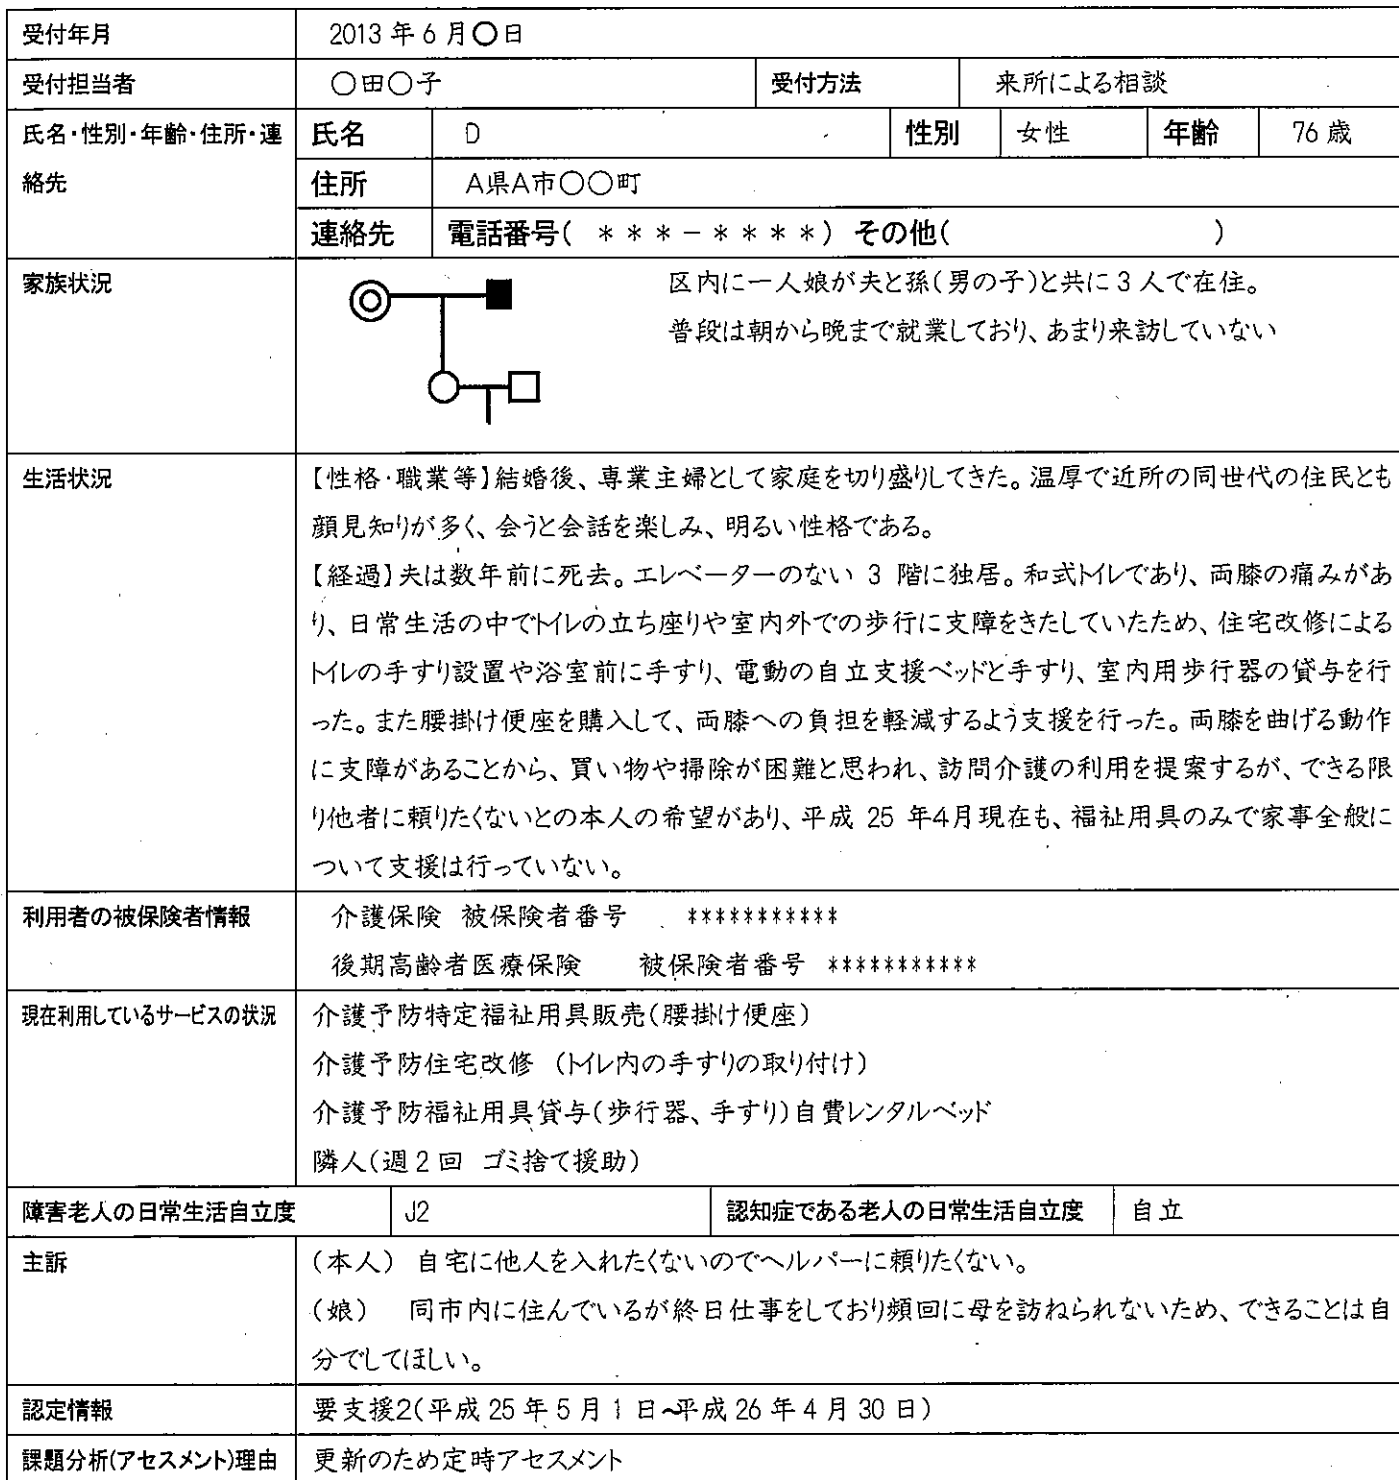 受付年月 2013年6月○日
受付担当者 ○田○子 受付方法 来所による相談
氏名・性別・年齢・住所・連 氏名 D 性別 女性 年齢 76歳
絡先 住所 A県A市○○町
連絡先 電話番号( ***-****) その他( )
家族状況 区内に一人娘が夫と孫(男の子)と共に3人で在住。
普段は朝から晩まで就業しており、あまり来訪していない
生活状況 【性格・職業等】結婚後、専業主婦として家庭を切り盛りしてきた。温厚で近所の同世代の住民とも
顔見知りが多く、会うと会話を楽しみ、明るい性格である。
【経過】夫は数年前に死去。エレベーターのない 3 階に独居。和式トイレであり、両膝の痛みがあ
り、日常生活の中でトイレの立ち座りや室内外での歩行に支障をきたしていたため、住宅改修による
トイレの手すり設置や浴室前に手すり、電動の自立支援ベッドと手すり、室内用歩行器の貸与を行
った。また腰掛け便座を購入して、両膝への負担を軽減するよう支援を行った。両膝を曲げる動作
に支障があることから、買い物や掃除が困難と思われ、訪問介護の利用を提案するが、できる限
り他者に頼りたくないとの本人の希望があり、平成 25 年4月現在も、福祉用具のみで家事全般に
ついて支援は行っていない。
利用者の被保険者情報 介護保険 被保険者番号 ***********
後期高齢者医療保険 被保険者番号 ***********
現在利用しているサービスの状況 介護予防特定福祉用具販売(腰掛け便座)
介護予防住宅改修 (トイレ内の手すりの取り付け)
介護予防福祉用具貸与(歩行器、手すり)自費レンタルベッド
隣人(週2回 ゴミ捨て援助)
障害老人の日常生活自立度 J2 認知症である老人の日常生活自立度 自立
主訴 (本人) 自宅に他人を入れたくないのでヘルパーに頼りたくない。
(娘) 同市内に住んでいるが終日仕事をしており頻回に母を訪ねられないため、できることは自
分でしてほしい。
認定情報 要支援2(平成25年5月1日~平成26年4月30日)
課題分析(アセスメント)理由 更新のため定時アセスメント